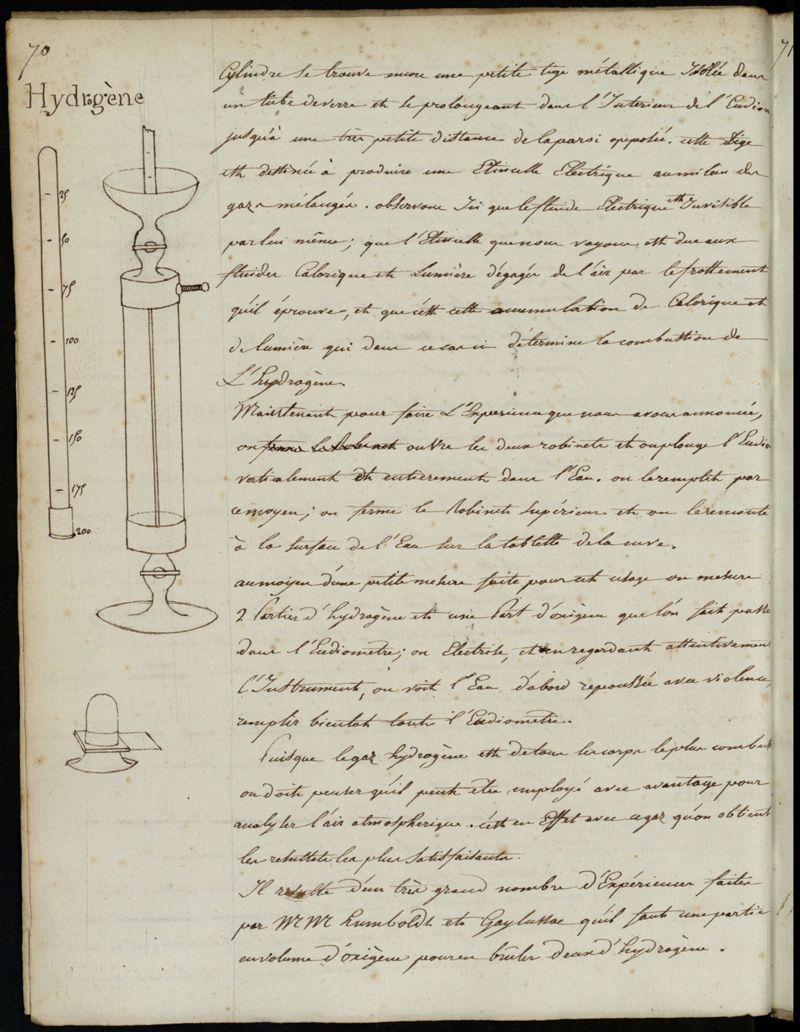 70
Hydrgène
25
50
75
100
125
150
175
200
Cylindre se trouve encore une petite tige métallique Isolée dans
un tube de verre et se prolongeant dans l'Interieur de l'Eudiom
jusqu'à une très petite distance de la paroi opposée. cette Tige
est destinée à produire une Etincelle Electrique au milieu des
gaz mélangés. observons Ici que le fluide Electrique est Invisible
par lui même; que l'Etincelle que nous voyons est due aux
fluides Calorique et Lumière dégagés de l'air par le frottement
qu'il éprouve, et que c'est cette accumulation de Calorique et
de lumière qui dans ce cas ci détermine la combustion de
L'hydrogène.
Maintenant pour faire L'Experience que nous avons annoncée,
on ferme Le Robinet ouvre les deux robinets et on plonge l'Eudio
verticalement et entierement dans l'Eau. on le remplit par
ce moyen; on ferme le Robinet Supérieur et on le remonte
à la surface de l'Eau sur la tablette de la cuve.
au moyen d'une petite mesure faite pour cet usage on mesure
2 Parties d'hydrogène et une Part d'oxigène que l'on fait passer
dans l'Eudiometre; on Electrise, et en regardant attentivement
L'Instrument, on voit l'Eau d'abord repoussée avec violence,
remplir bientot tout l'Eudiometre.
Puisque le gaz hydrogène est de tous les corps le plus combust
on doit penser qu'il peut être employé avec avantage pour
analyser l'air atmospherique. c'est en Effet avec ce gaz qu'on obtient
les resultats les plus Satisfaisants.
Il resulte d'un très grand nombre d'Expériences faites
par MM humboldt et Gaylussac qu'il faut une partie
en volume d'oxigène pour en brûler deux d'hydrogène.
71